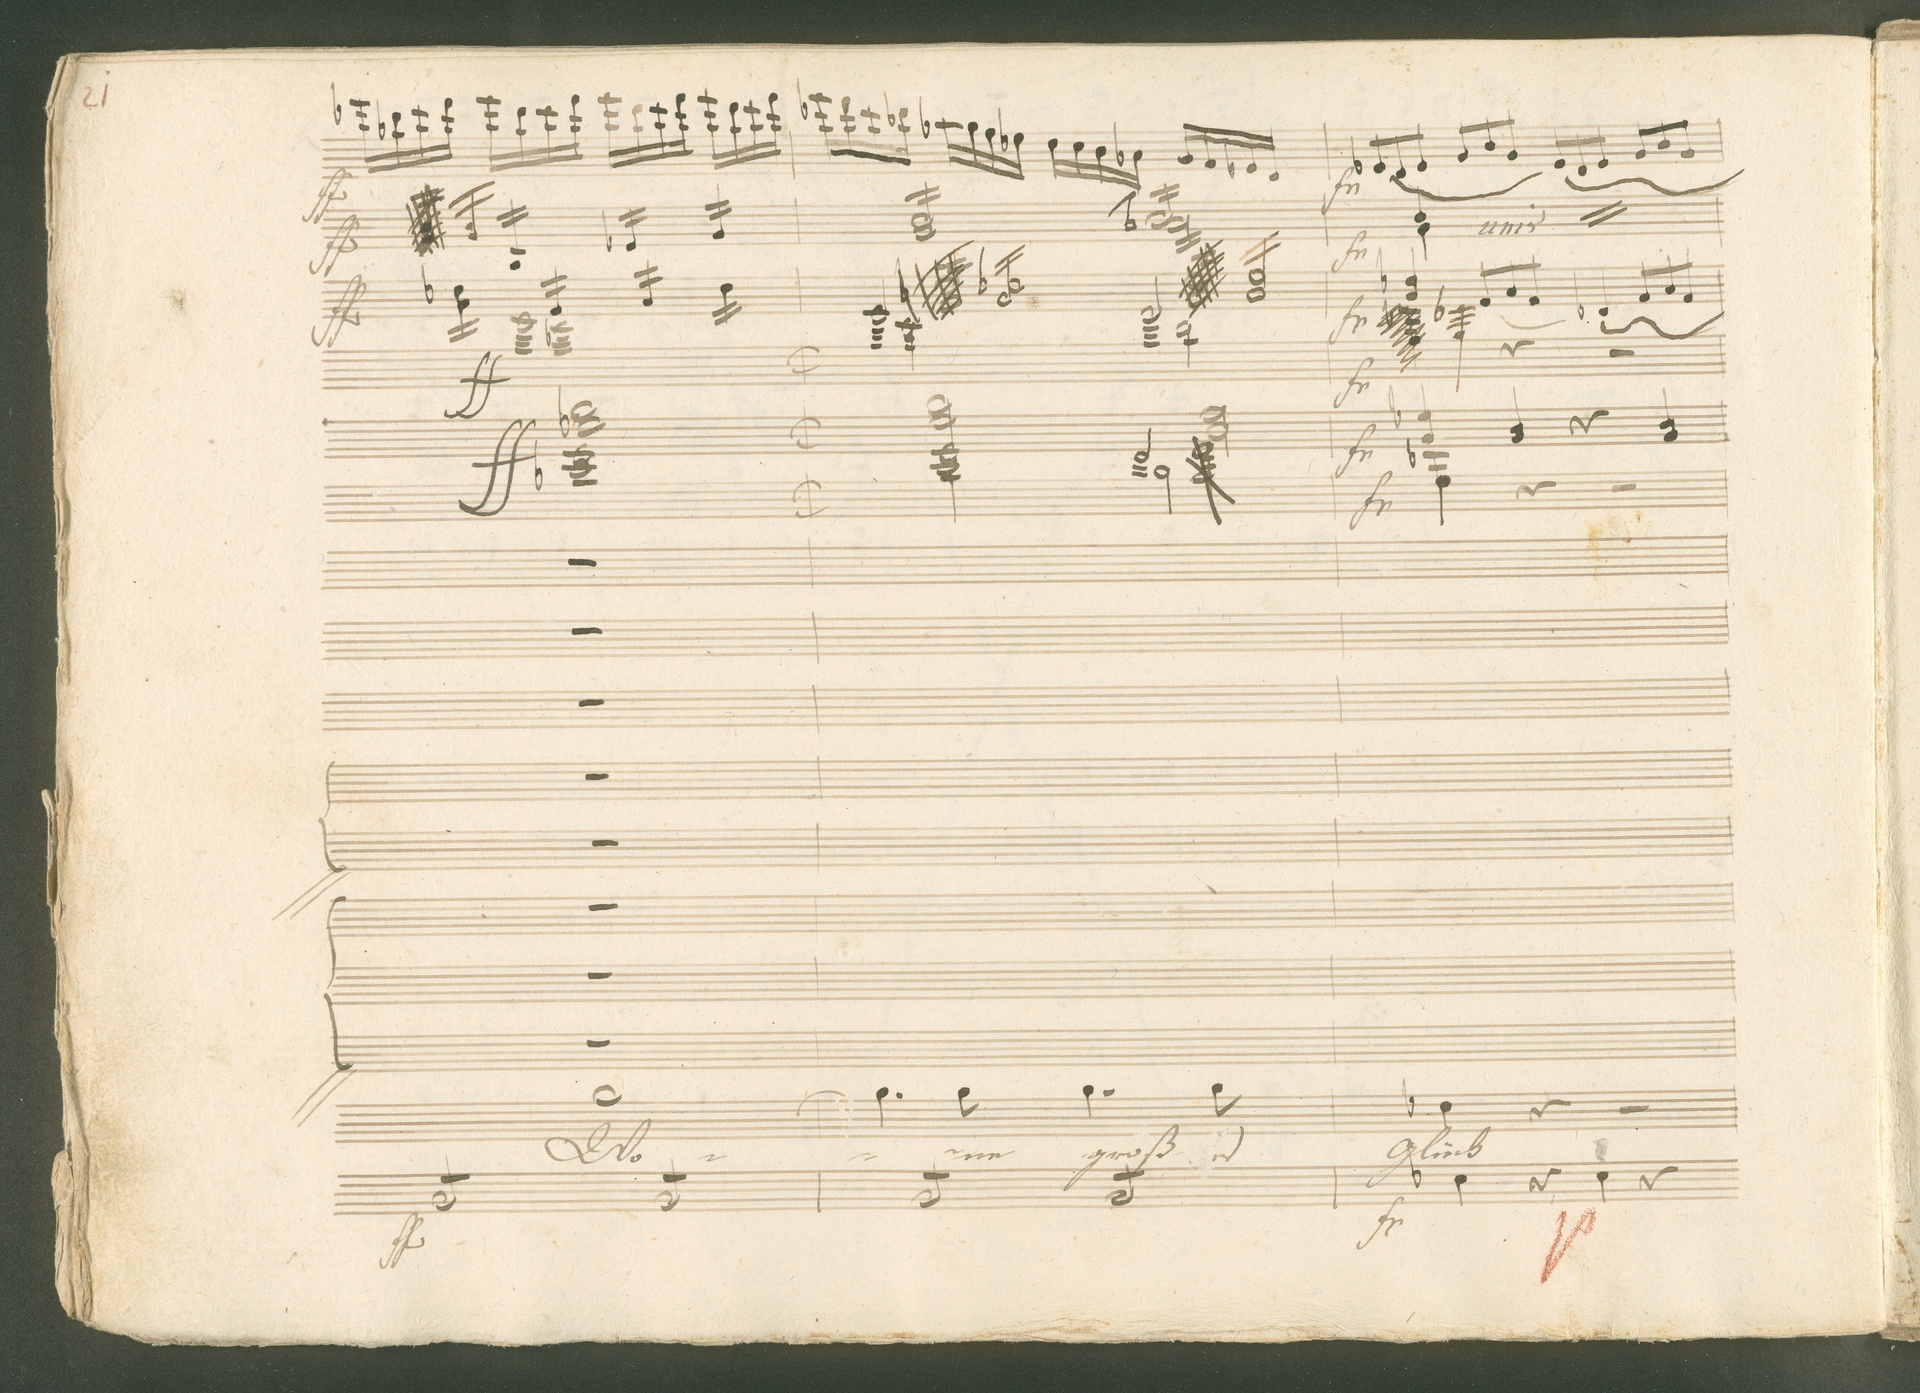 21
ff
ff unis
ff
ff
ff
fp
fp
fp
fp
fp
fp
Wo - - - ne groß
Glück
ff fp
p